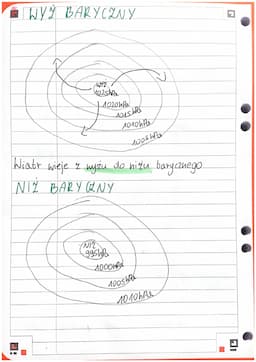 WYŻ BARYCZNY
WYŻ
1025hPa
1020hPa
1015hPa
1010hPa
1005hPa
Wiatr wieje z wyżu do niżu barycznego
NIŻ BARYCZNY
NIŻ
995hPa
1000hPa
1005hPa
1010hPa